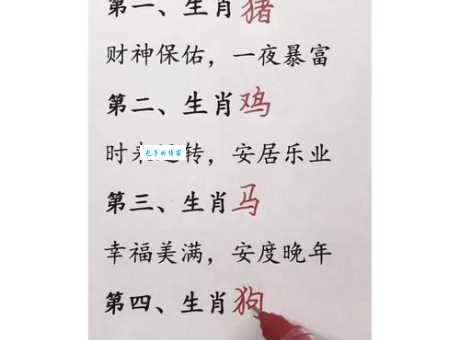 第一、生肖猪
财神保佑，一夜暴富
第二、生肖鸡
时来转，安居乐业
第三、生肖马
幸福美满，安度晚年
第四、生肖狗